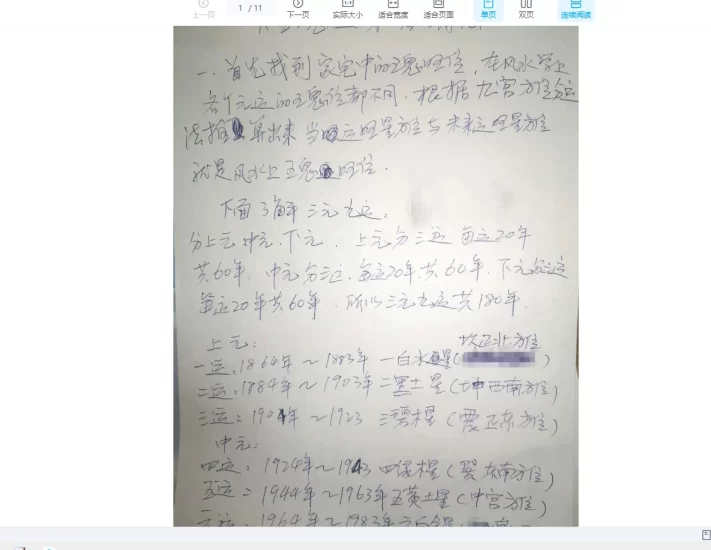 上一页
1 / 11
下一页
实际大小
适合宽度
适合页面
单页
双页
连续阅读
一、首先找到家宅中的五鬼旺位，在风水学上
各个元运的五鬼位都不同．根据九宫方位
法推算出来 当运旺星方位与未来运旺星方位
就是风水上五鬼旺位．
下面了解三元九运。
分上元 中元．下元．上元分三运 每运20年
共60年．中元分三运．每运20年．共60年．下元分三运
每运20年共60年．所以三元九运共180年．
上元：
坎正北方位
一运：1864年～1883年 一白水星（
二运：1884年～1903年 二黑土星（坤西南方位）
三运：1904年～1923 三碧木星（震正东方位）
中元：
四运：1924年～1943 四绿木星（巽东南方位）
五运：1944年～1963年五黄土星（中宫方位）
1964年～1983年六白金星